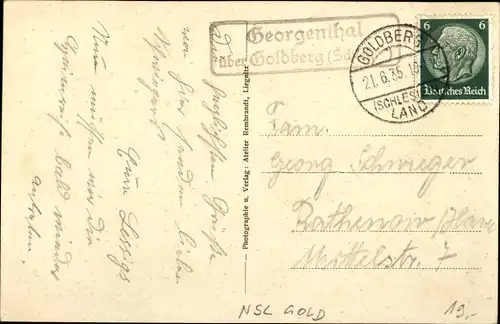 Georgenthal
über Goldberg (Sch
GOLDBERG
21.6.35.
(SCHLES)
LAND
6
6
Deutsches Reich
Die
herzlichsten Grüße
von hier senden Lieber
Eure Lossigs
Nun müssen wir die
bald wieder
antreten.
Photographie u. Verlag: Atelier Rembrandt, Liegnitz
Fam.
Georg Schwieger
Rathenow/Havel
Mittelstr. 7
NSL GOLD
19,-